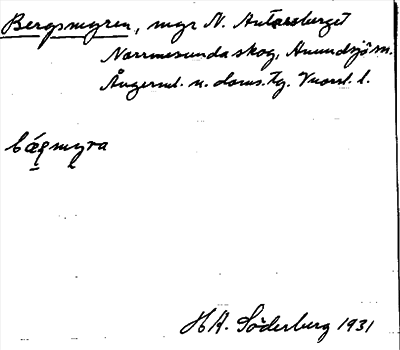 Bergsmyren, myr N. Antarsberget
Norrmesunda skog, Anundsjö sn.
Ångerml. n. doms. tg. Vnorrl. l.
bǽrmyra
H A. Söderberg 1931